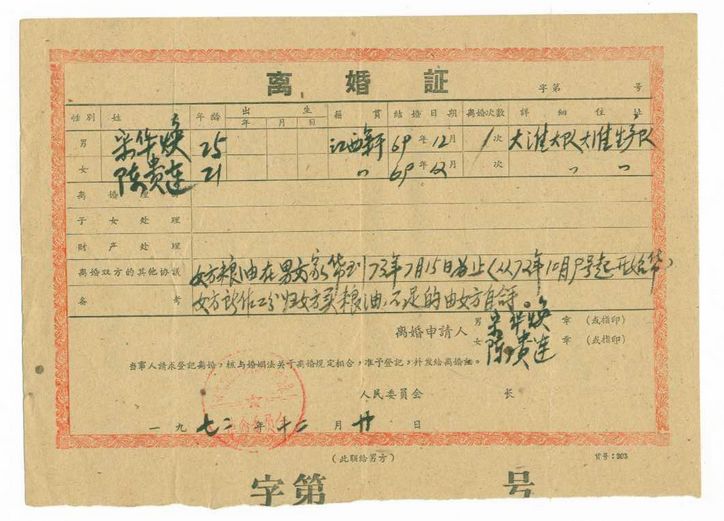 离婚証
字第 号
性别 姓 年齡 出 生 籍 貫 結婚日期 离婚次数 詳細住址
年 月 日
男 宋华焕 25 江西 69年12月 1次 大淮大队大淮生产队
女 陈贵莲 21 〃 69年12月 次 〃 〃
离婚
子女处理
財产处理
离婚双方的其他协議 女方粮油在男方家 到73年7月15日 止(从72年10月 号起开始
备考 女方所作工分归女方买粮油,不足的由女方自
离婚申請人 男 宋华焕 章 (或指印)
女 陈贵莲 章 (或指印)
当事人請求登記离婚,核与婚姻法关于离婚規定相合,准予登記,幷发給离婚証。
人民委員会 長
一九七二年十二月廿日
(此联給男方)
貨号:303
字第 号